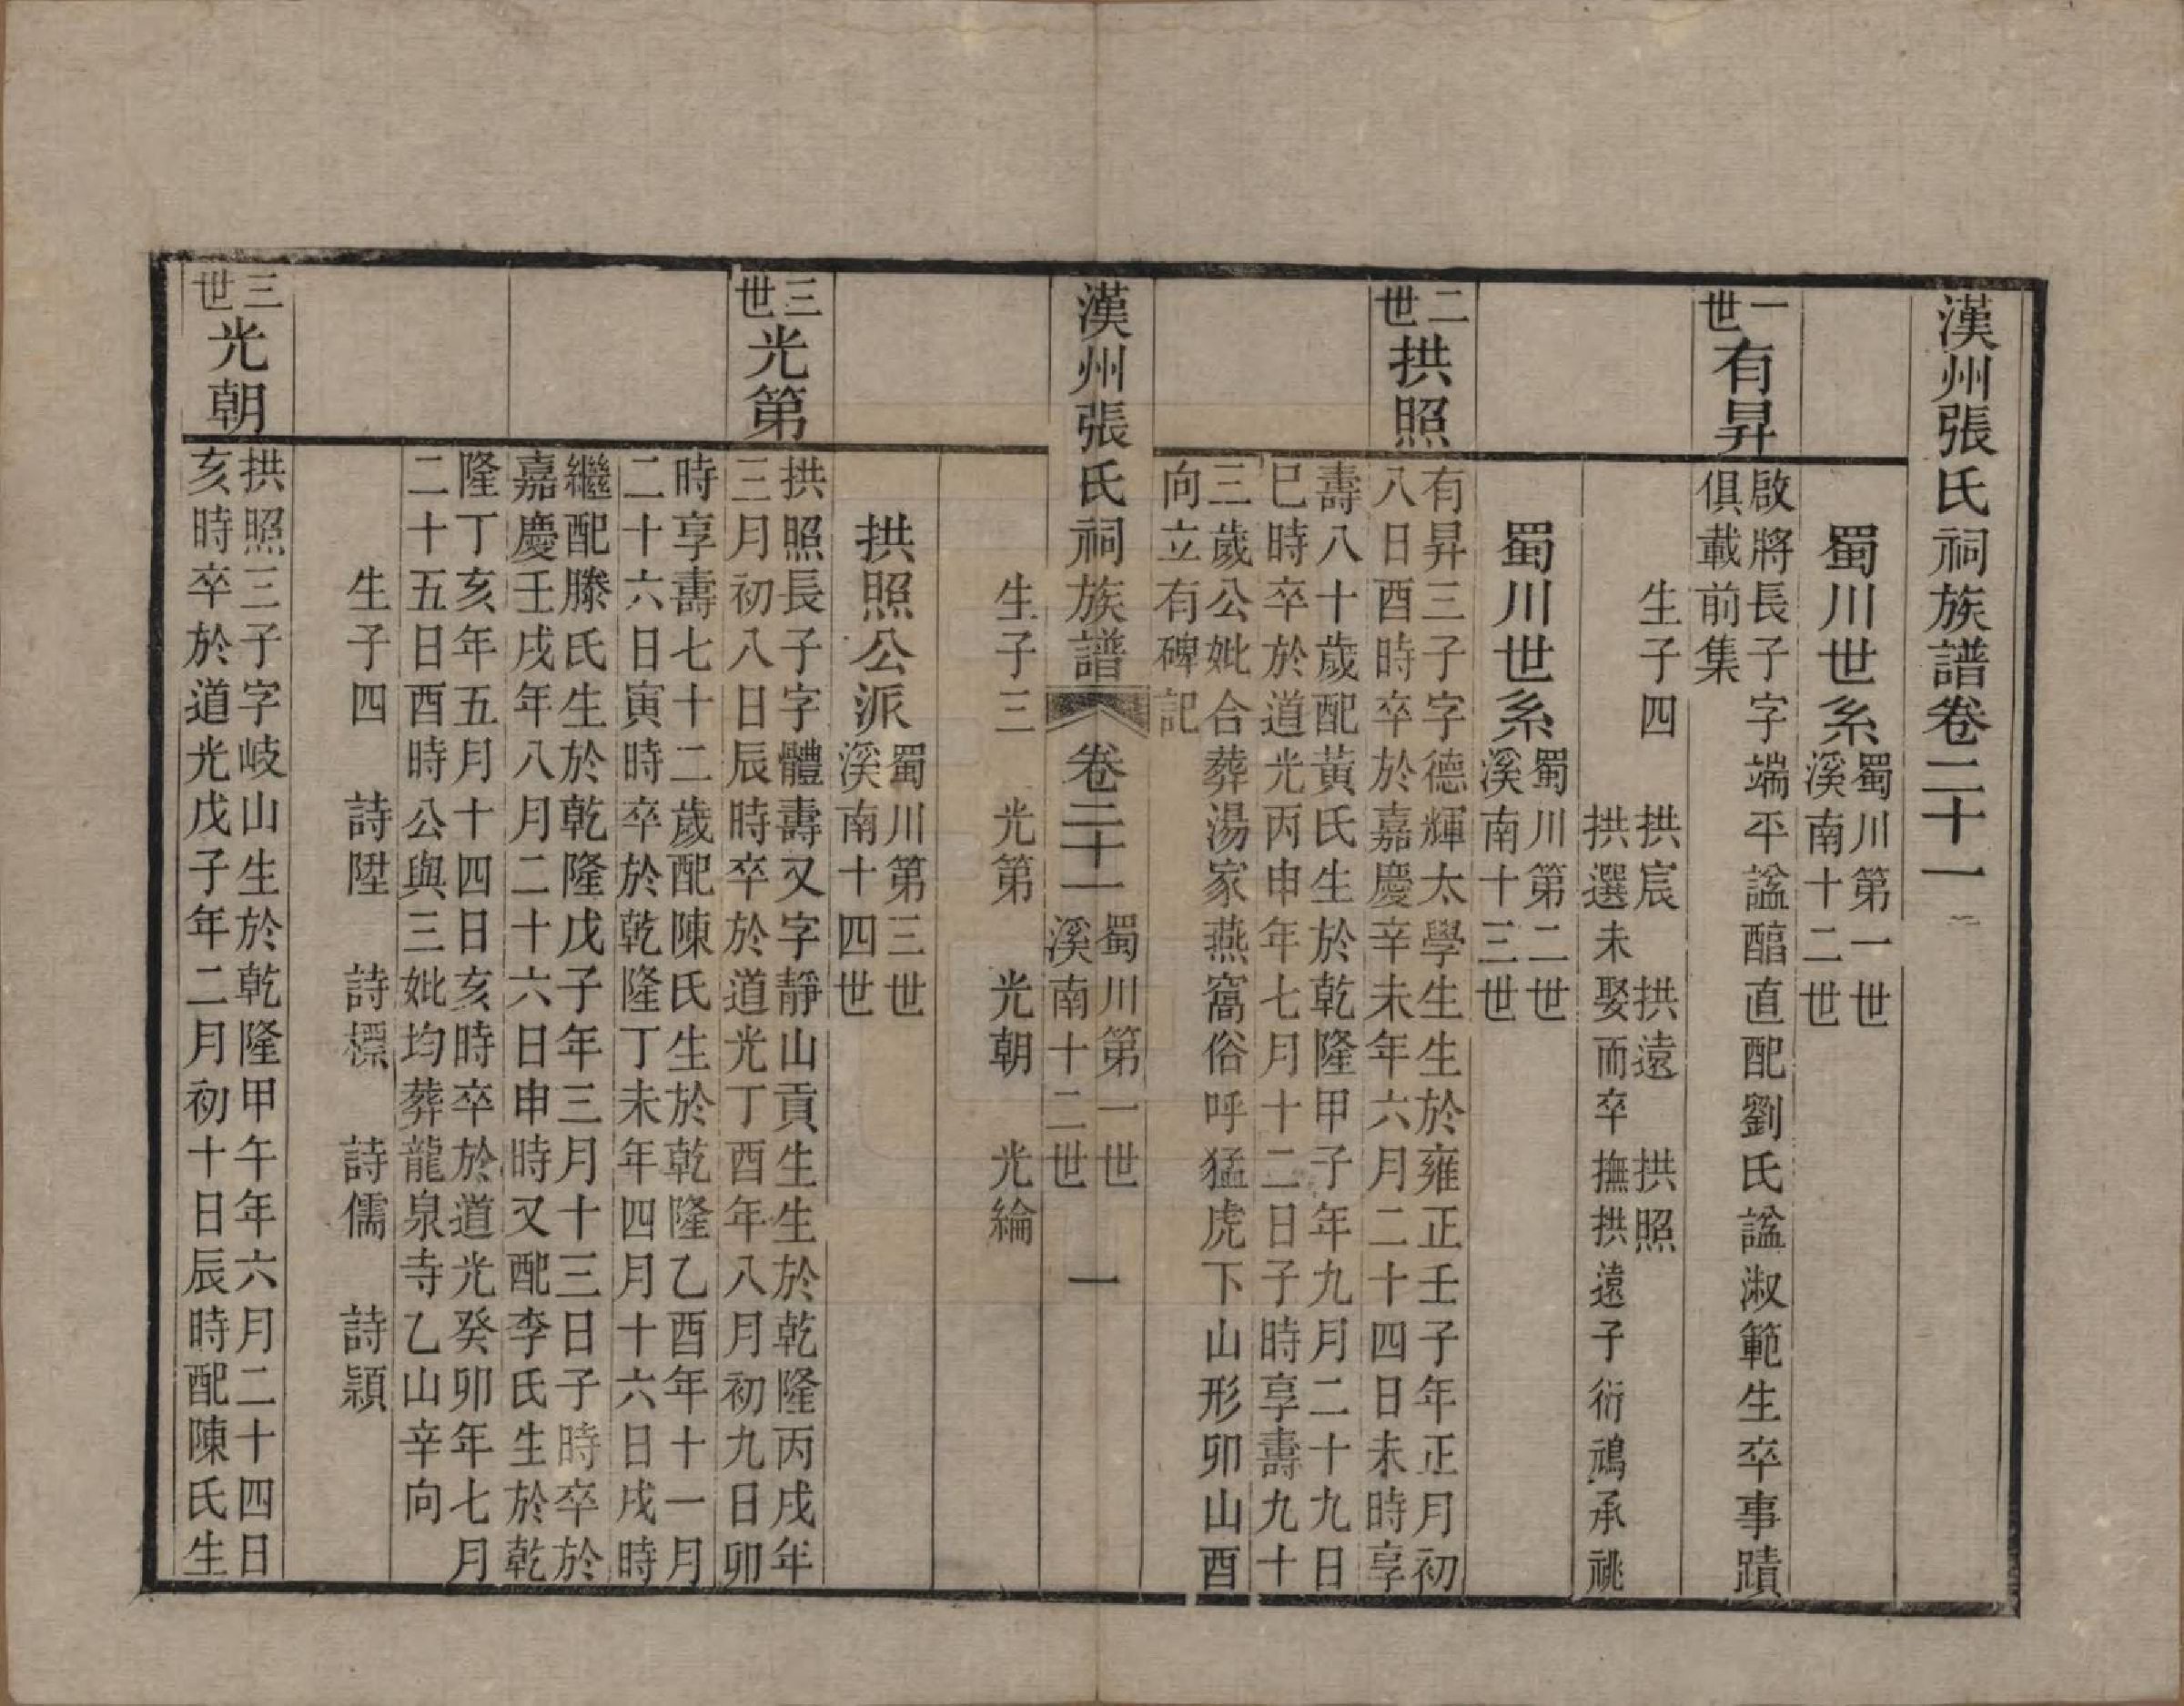 漢州張氏祠族譜卷二十一
蜀川世系
蜀川第一世
溪南十二世
一世
有昇
啟將長子字端平謚醕直配劉氏謚淑範生卒事蹟
俱載前集
生子四
拱宸 拱遠 拱照
拱選未娶而卒撫拱遠子衍鴻承祧
蜀川世系
蜀川第二世
溪南十三世
二世
拱照
有昇三子字德輝太學生生於雍正壬子年正月初
八日酉時卒於嘉慶辛未年六月二十四日未時享
壽八十歲配黃氏生於乾隆甲子年九月二十九日
巳時卒於道光丙申年七月十二日子時享壽九十
三歲公妣合葬湯家燕窩俗呼猛虎下山形卯山酉
向立有碑記
漢州張氏祠族譜
卷二十一
蜀川第一世
溪南十二世
一
生子三 光第 光朝 光綸
拱照公派
蜀川第三世
溪南十四世
三世
光第
拱照長子字體壽又字靜山貢生生於乾隆丙戌年
三月初八日辰時卒於道光丁酉年八月初九日卯
時享壽七十二歲配陳氏生於乾隆乙酉年十一月
二十六日寅時卒於乾隆丁未年四月十六日戌時
繼配滕氏生於乾隆戊子年三月十三日子時卒於
嘉慶壬戌年八月二十六日申時又配李氏生於乾
隆丁亥年五月十四日亥時卒於道光癸卯年七月
二十五日酉時公與三妣均葬龍泉寺乙山辛向
生子四 詩陞 詩標 詩儒 詩穎
三世
光朝
拱照三子字岐山生於乾隆甲午年六月二十四日
亥時卒於道光戊子年二月初十日辰時配陳氏生